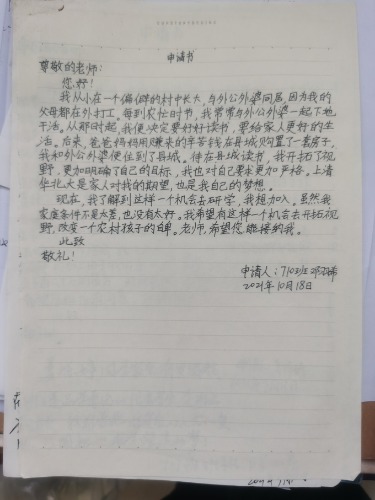 申请书
尊敬的老师:
您好!
我从小在一个偏僻的村中长大,与外公外婆同居,因为我的
父母都在外打工,每到农忙时节,我常常与外公外婆一起下地
干活。从那时起,我便决定要好好读书,要给家人更好的生
活。后来,爸爸妈妈用赚来的辛苦钱在县城购置了一套房子,
我和外公外婆便住到了县城。待在县城读书,我开拓了视
野,更加明确了自己的目标,我也对自己要求更加严格。上清
华北大是家人对我的期望,也是我自己的梦想。
现在,我了解到这样一个机会去研学,我想加入。虽然我
家庭条件不是太差,也没有太好。我希望有这样一个机会去开拓视
野,改变一个农村孩子的自卑。老师,希望您能接纳我。
此致
敬礼!
申请人:7102班
2021年10月18日